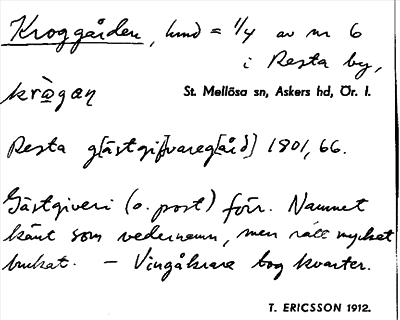 Kroggården, hmd = 1/4 av nr 6
i Resta by,
krògaɳ
St. Mellösa sn, Askers hd, Ör. l.
Resta g[ästgif]vareg[ård] 1801, 66.
Gästgiveri (o. post) förr. Namnet
känt som vedernamn, men rätt mycket
brukat. – Vingåkrare bog kvarter.
T. ERICSSON 1912.